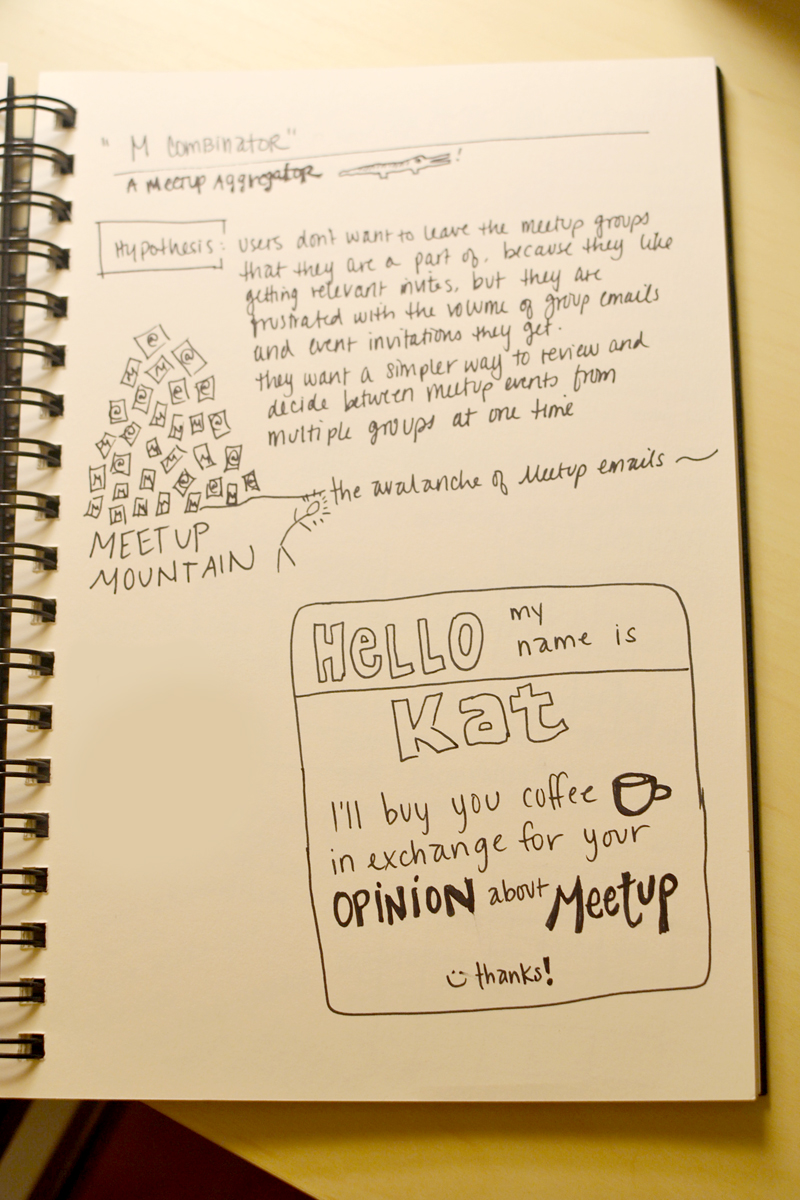 " M Combinator"
A Meetup Aggregator !
Hypothesis: users don't want to leave the meetup groups
that they are a part of, because they like
getting relevant invites, but they are
frustrated with the volume of group emails
and event invitations they get.
they want a simpler way to review and
decide between meetup events from
multiple groups at one time
the avalanche of Meetup emails
MEETUP
MOUNTAIN
HeLLO my
name is
Kat
I'll buy you coffee
in exchange for your
OPINION about Meetup
thanks!